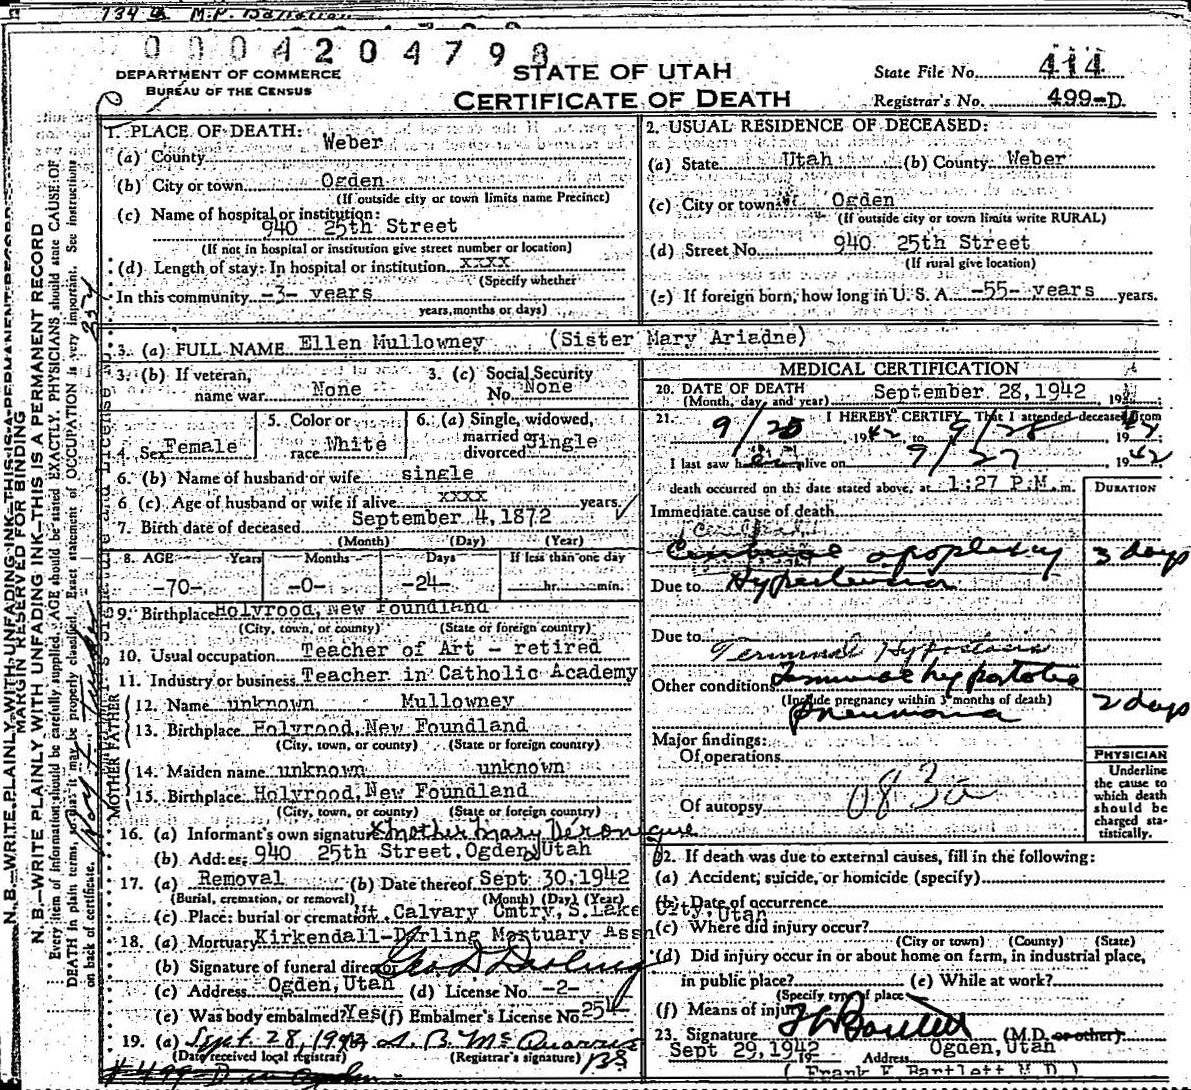 734th M.P. Battalion
0004204798
DEPARTMENT OF COMMERCE
BUREAU OF THE CENSUS
STATE OF UTAH
CERTIFICATE OF DEATH
State File No. 414
Registrar's No. 499-D.
N. B.—WRITE PLAINLY, WITH UNFADING INK—THIS IS A PERMANENT RECORD
MARGIN RESERVED FOR BINDING
N. B.—WRITE PLAINLY WITH UNFADING INK—THIS IS A PERMANENT RECORD
Every item of information should be carefully supplied. AGE should be stated EXACTLY. PHYSICIANS should state CAUSE OF
DEATH in plain terms, so that it may be properly classified. Exact statement of OCCUPATION is very important. See instructions
on back of certificate.
1. PLACE OF DEATH:
(a) County Weber
(b) City or town Ogden
(If outside city or town limits name Precinct)
(c) Name of hospital or institution:
940 25th Street
(If not in hospital or institution give street number or location)
(d) Length of stay: In hospital or institution xxxx
(Specify whether
In this community -3- years
years, months or days)
2. USUAL RESIDENCE OF DECEASED:
(a) State Utah (b) County Weber
(c) City or town Ogden
(If outside city or town limits write RURAL)
(d) Street No. 940 25th Street
(If rural give location)
(e) If foreign born, how long in U. S. A. -55- years years.
3. (a) FULL NAME Ellen Mullowney (Sister Mary Ariadne)
3. (b) If veteran, name war None
3. (c) Social Security No. None
4. Sex Female
5. Color or race White
6. (a) Single, widowed, married or divorced Single
6. (b) Name of husband or wife single
6 (c) Age of husband or wife if alive xxxx years
7. Birth date of deceased September 4, 1872
(Month) (Day) (Year)
8. AGE Years Months Days If less than one day
-70- -0- -24- hr. min.
9. Birthplace Holyrood, New Foundland
(City, town, or county) (State or foreign country)
10. Usual occupation Teacher of Art - retired
11. Industry or business Teacher in Catholic Academy
FATHER
12. Name unknown Mullowney
13. Birthplace Holyrood, New Foundland
(City, town, or county) (State or foreign country)
MOTHER
14. Maiden name unknown unknown
15. Birthplace Holyrood, New Foundland
(City, town, or county) (State or foreign country)
16. (a) Informant's own signature x Mother Mary Veronique
(b) Address 940 25th Street, Ogden, Utah
17. (a) Removal (b) Date thereof Sept 30, 1942
(Burial, cremation, or removal) (Month) (Day) (Year)
(c) Place: burial or cremation Mt. Calvary Cmtry, S. Lake City, Utah
18. (a) Mortuary Kirkendall-Darling Mortuary Assn
(b) Signature of funeral director Geo D Darling
(c) Address Ogden, Utah (d) License No. -2-
(e) Was body embalmed? Yes (f) Embalmer's License No. 254
19. (a) Sept. 28, 1942
(Date received local registrar) (Registrar's signature)
MEDICAL CERTIFICATION
20. DATE OF DEATH September 28, 1942, 19
(Month, day, and year)
21. I HEREBY CERTIFY, That I attended deceased from
9/25 1942, to 9/28 1942;
I last saw h alive on 9/27, 1942
death occurred on the date stated above, at 1:27 P.M. m.
DURATION
Immediate cause of death
Cerebral apoplexy 3 days
Due to Hypertension
Due to
Terminal Hypostasis
Other conditions Terminal hypostatic
(Include pregnancy within 3 months of death)
pneumonia 2 days
Major findings:
Of operations
083a
Of autopsy
PHYSICIAN
Underline the cause to which death should be charged statistically.
22. If death was due to external causes, fill in the following:
(a) Accident, suicide, or homicide (specify)
(b) Date of occurrence
(c) Where did injury occur?
(City or town) (County) (State)
(d) Did injury occur in or about home on farm, in industrial place,
in public place? (e) While at work?
(Specify type of place)
(f) Means of injury
23. Signature F Bartlett (M.D. or other)
Sept 29, 1942 19 Address Ogden, Utah
( Frank F Bartlett M.D.)